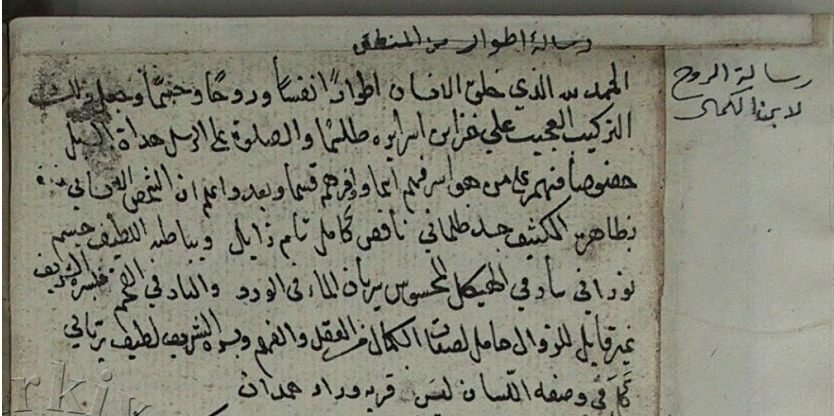 رسالة اطوار من المنطق
رسالة الروح
لابن الكمال
الحمد لله الذي خلق الانسان اطوارًا نفسًا وروحًا وجسمًا وجعل ذلك
التركيب العجيب على خزاين اسراره طلسمًا والصلوة على الرسل هداة السبل
خصوصًا منهم على من هو اسرفهم اسما واوفرهم قسما وبعد واعلم ان الشخص الانساني
بظاهره الكثيف جسد ظلماني ناقص كامل تام زايل وبباطنه اللطيف جسم
نوراني سار في الهيكل المحسوس سريان الماء في الورد والنار في الفحم
غير قابل للزوال حامل لصفات الكمال من العقل والفهم وبسره الشريف لطيف رباني
كَلَّ في وصفه اللسان ليس قريه وراء عبدان
rkiv